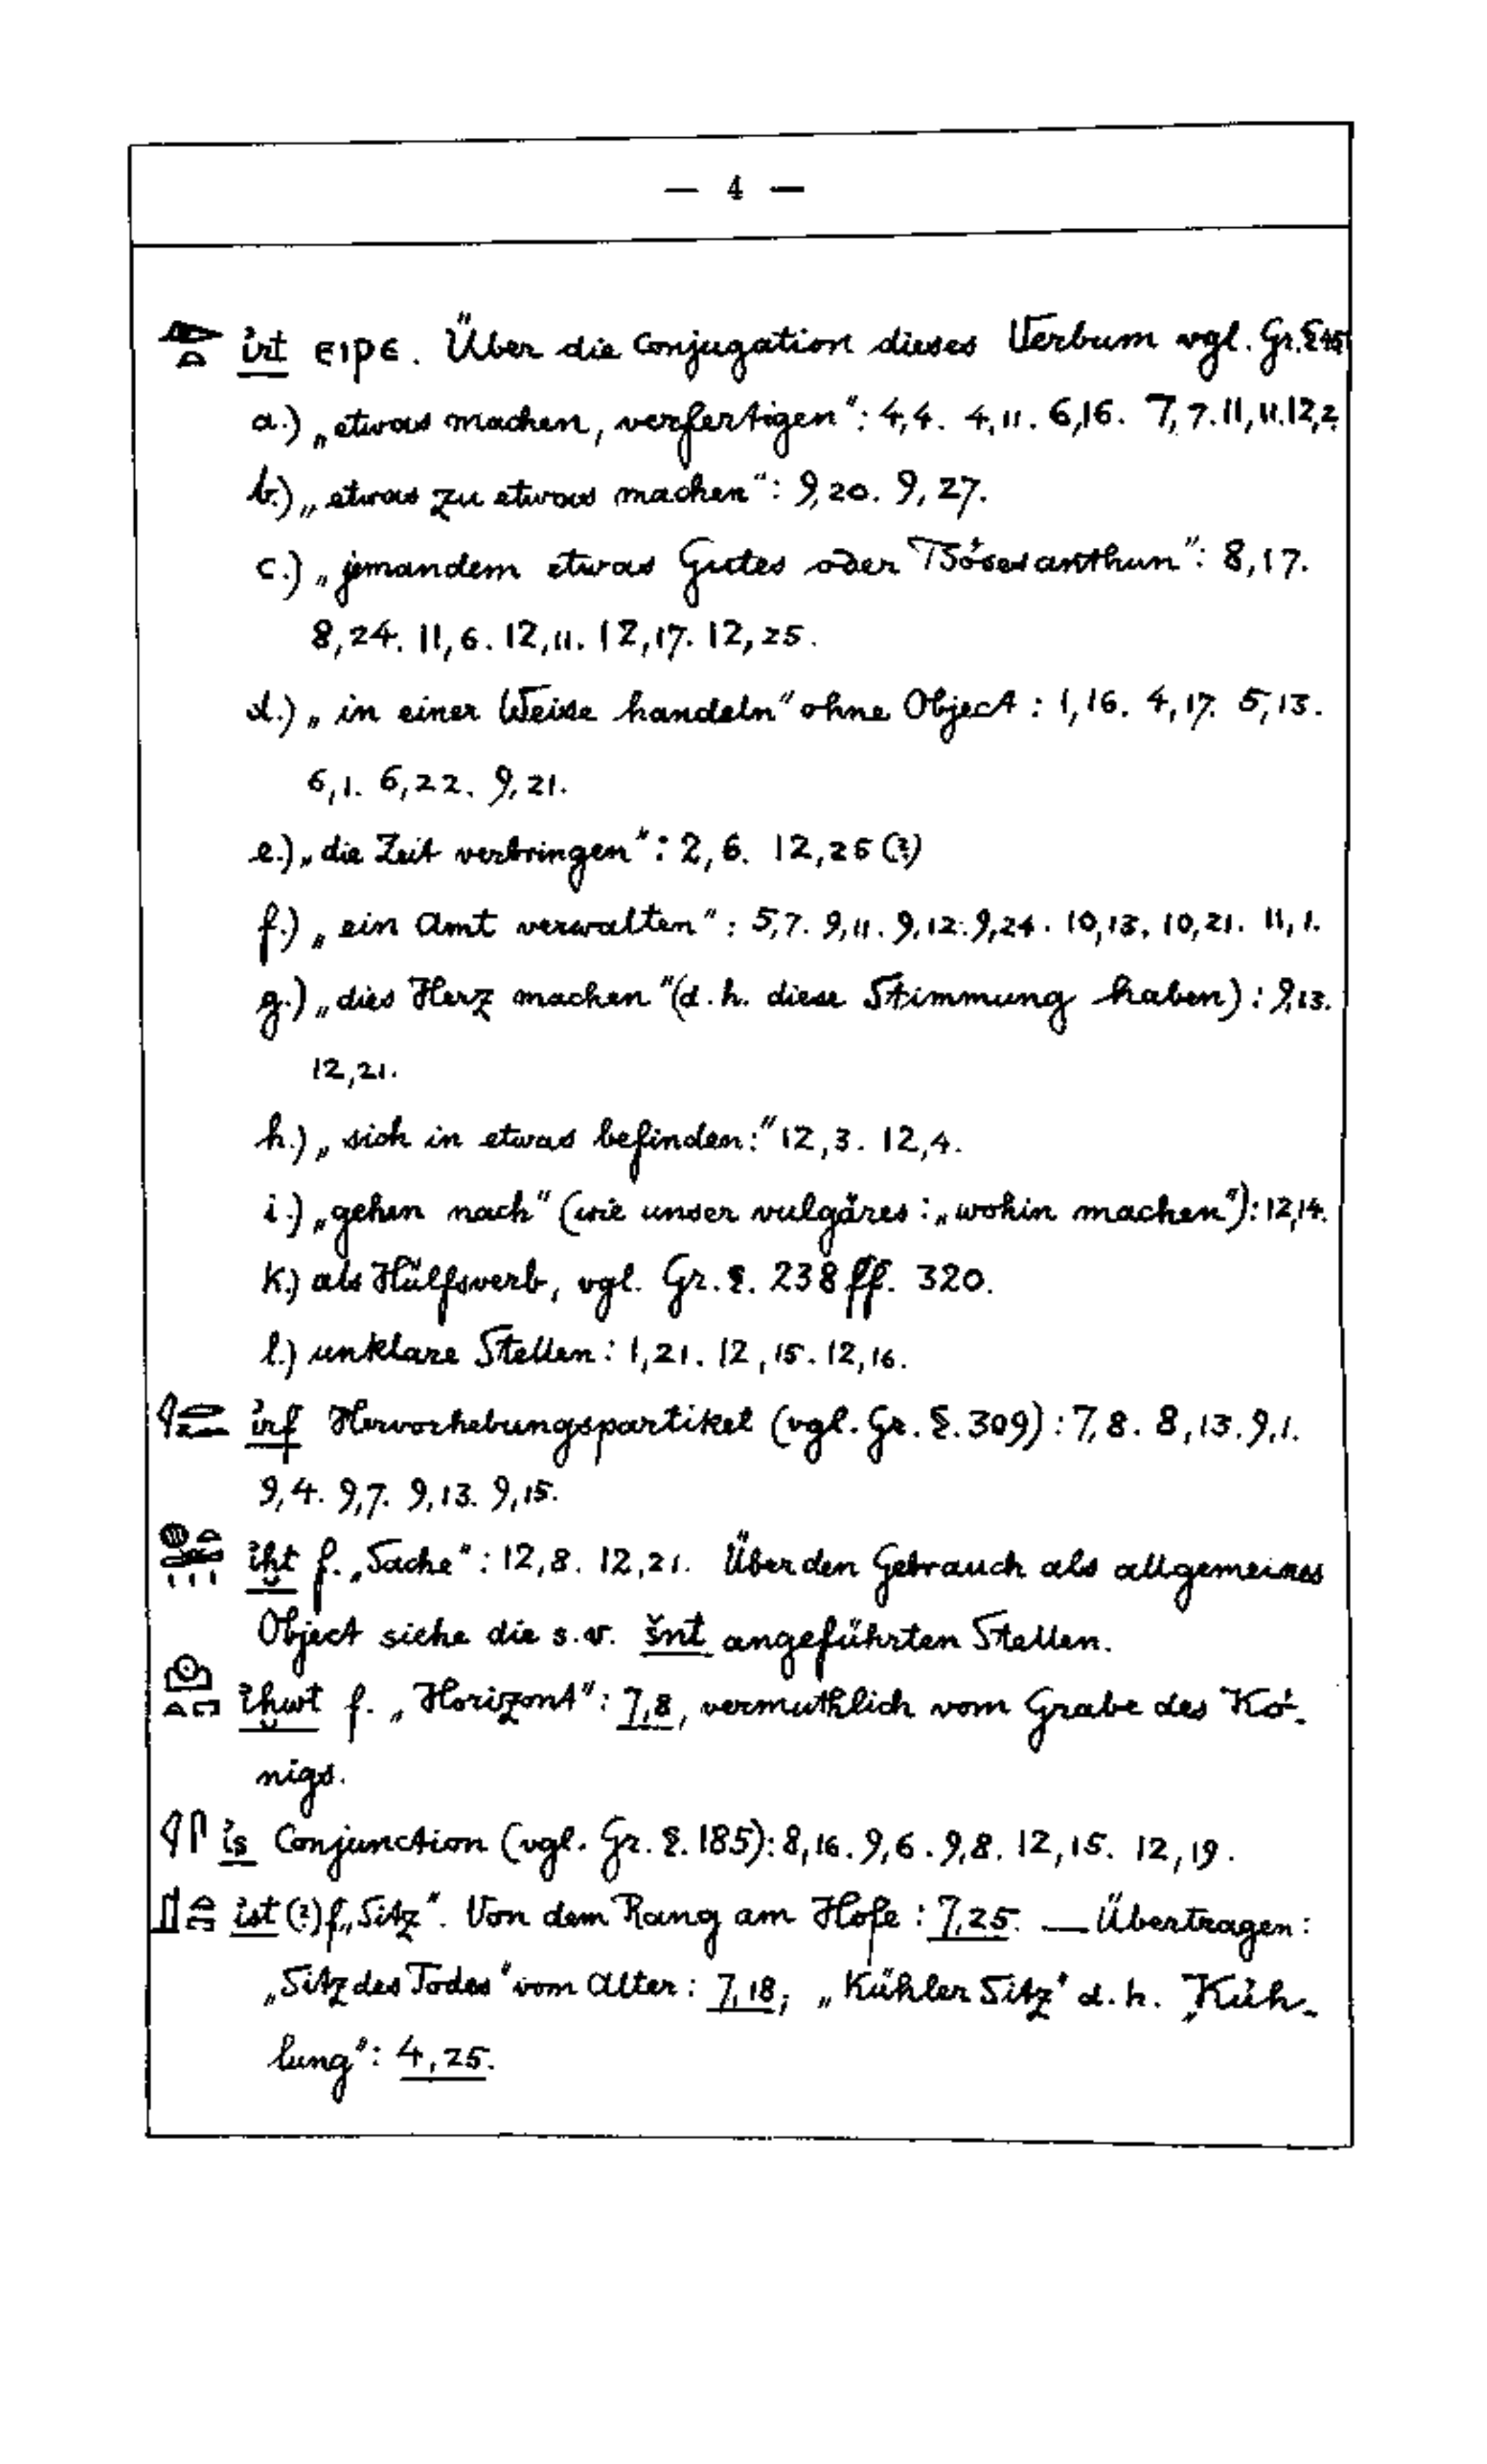 — 4 —
ỉrt ⲉⲓⲣⲉ. Über die Conjugation dieses Verbum vgl. Gr. §
a.) „etwas machen, verfertigen“: 4,4. 4,11. 6,16. 7,7. 11,11. 12,2
b.) „etwas zu etwas machen“: 9,20. 9,27.
c.) „jemandem etwas Gutes oder Böses anthun“: 8,17.
8,24. 11,6. 12,11. 12,17. 12,25.
d.) „in einer Weise handeln“ ohne Object: 1,16. 4,17. 5,13.
6,1. 6,22. 9,21.
e.) „die Zeit verbringen“: 2,6. 12,25 (?)
f.) „ein Amt verwalten“: 5,7. 9,11. 9,12. 9,24. 10,13. 10,21. 11,1.
g.) „dies Herz machen“ (d.h. diese Stimmung haben): 9,13.
12,21.
h.) „sich in etwas befinden:“ 12,3. 12,4.
i.) „gehen nach“ (wie unser vulgäres: „wohin machen“): 12,14.
k.) als Hülfsverb, vgl. Gr. §. 238 ff. 320.
l.) unklare Stellen: 1,21. 12,15. 12,16.
ỉrf Hervorhebungspartikel (vgl. Gr. §. 309): 7,8. 8,13. 9,1.
9,4. 9,7. 9,13. 9,15.
ỉḫt f. „Sache“: 12,8. 12,21. Über den Gebrauch als allgemeines
Object siehe die s.v. šnt angeführten Stellen.
ỉḫwt f. „Horizont“: 7,8, vermuthlich vom Grabe des Kö-
nigs.
𓇋𓋴 ỉs Conjunction (vgl. Gr. §. 185): 8,16. 9,6. 9,8. 12,15. 12,19.
ỉst (?) f. „Sitz“. Von dem Rang am Hofe: 7,25. — Übertragen:
„Sitz des Todes“ vom Alter: 7,18; „Kühler Sitz“ d.h. „Küh-
lung“: 4,25.